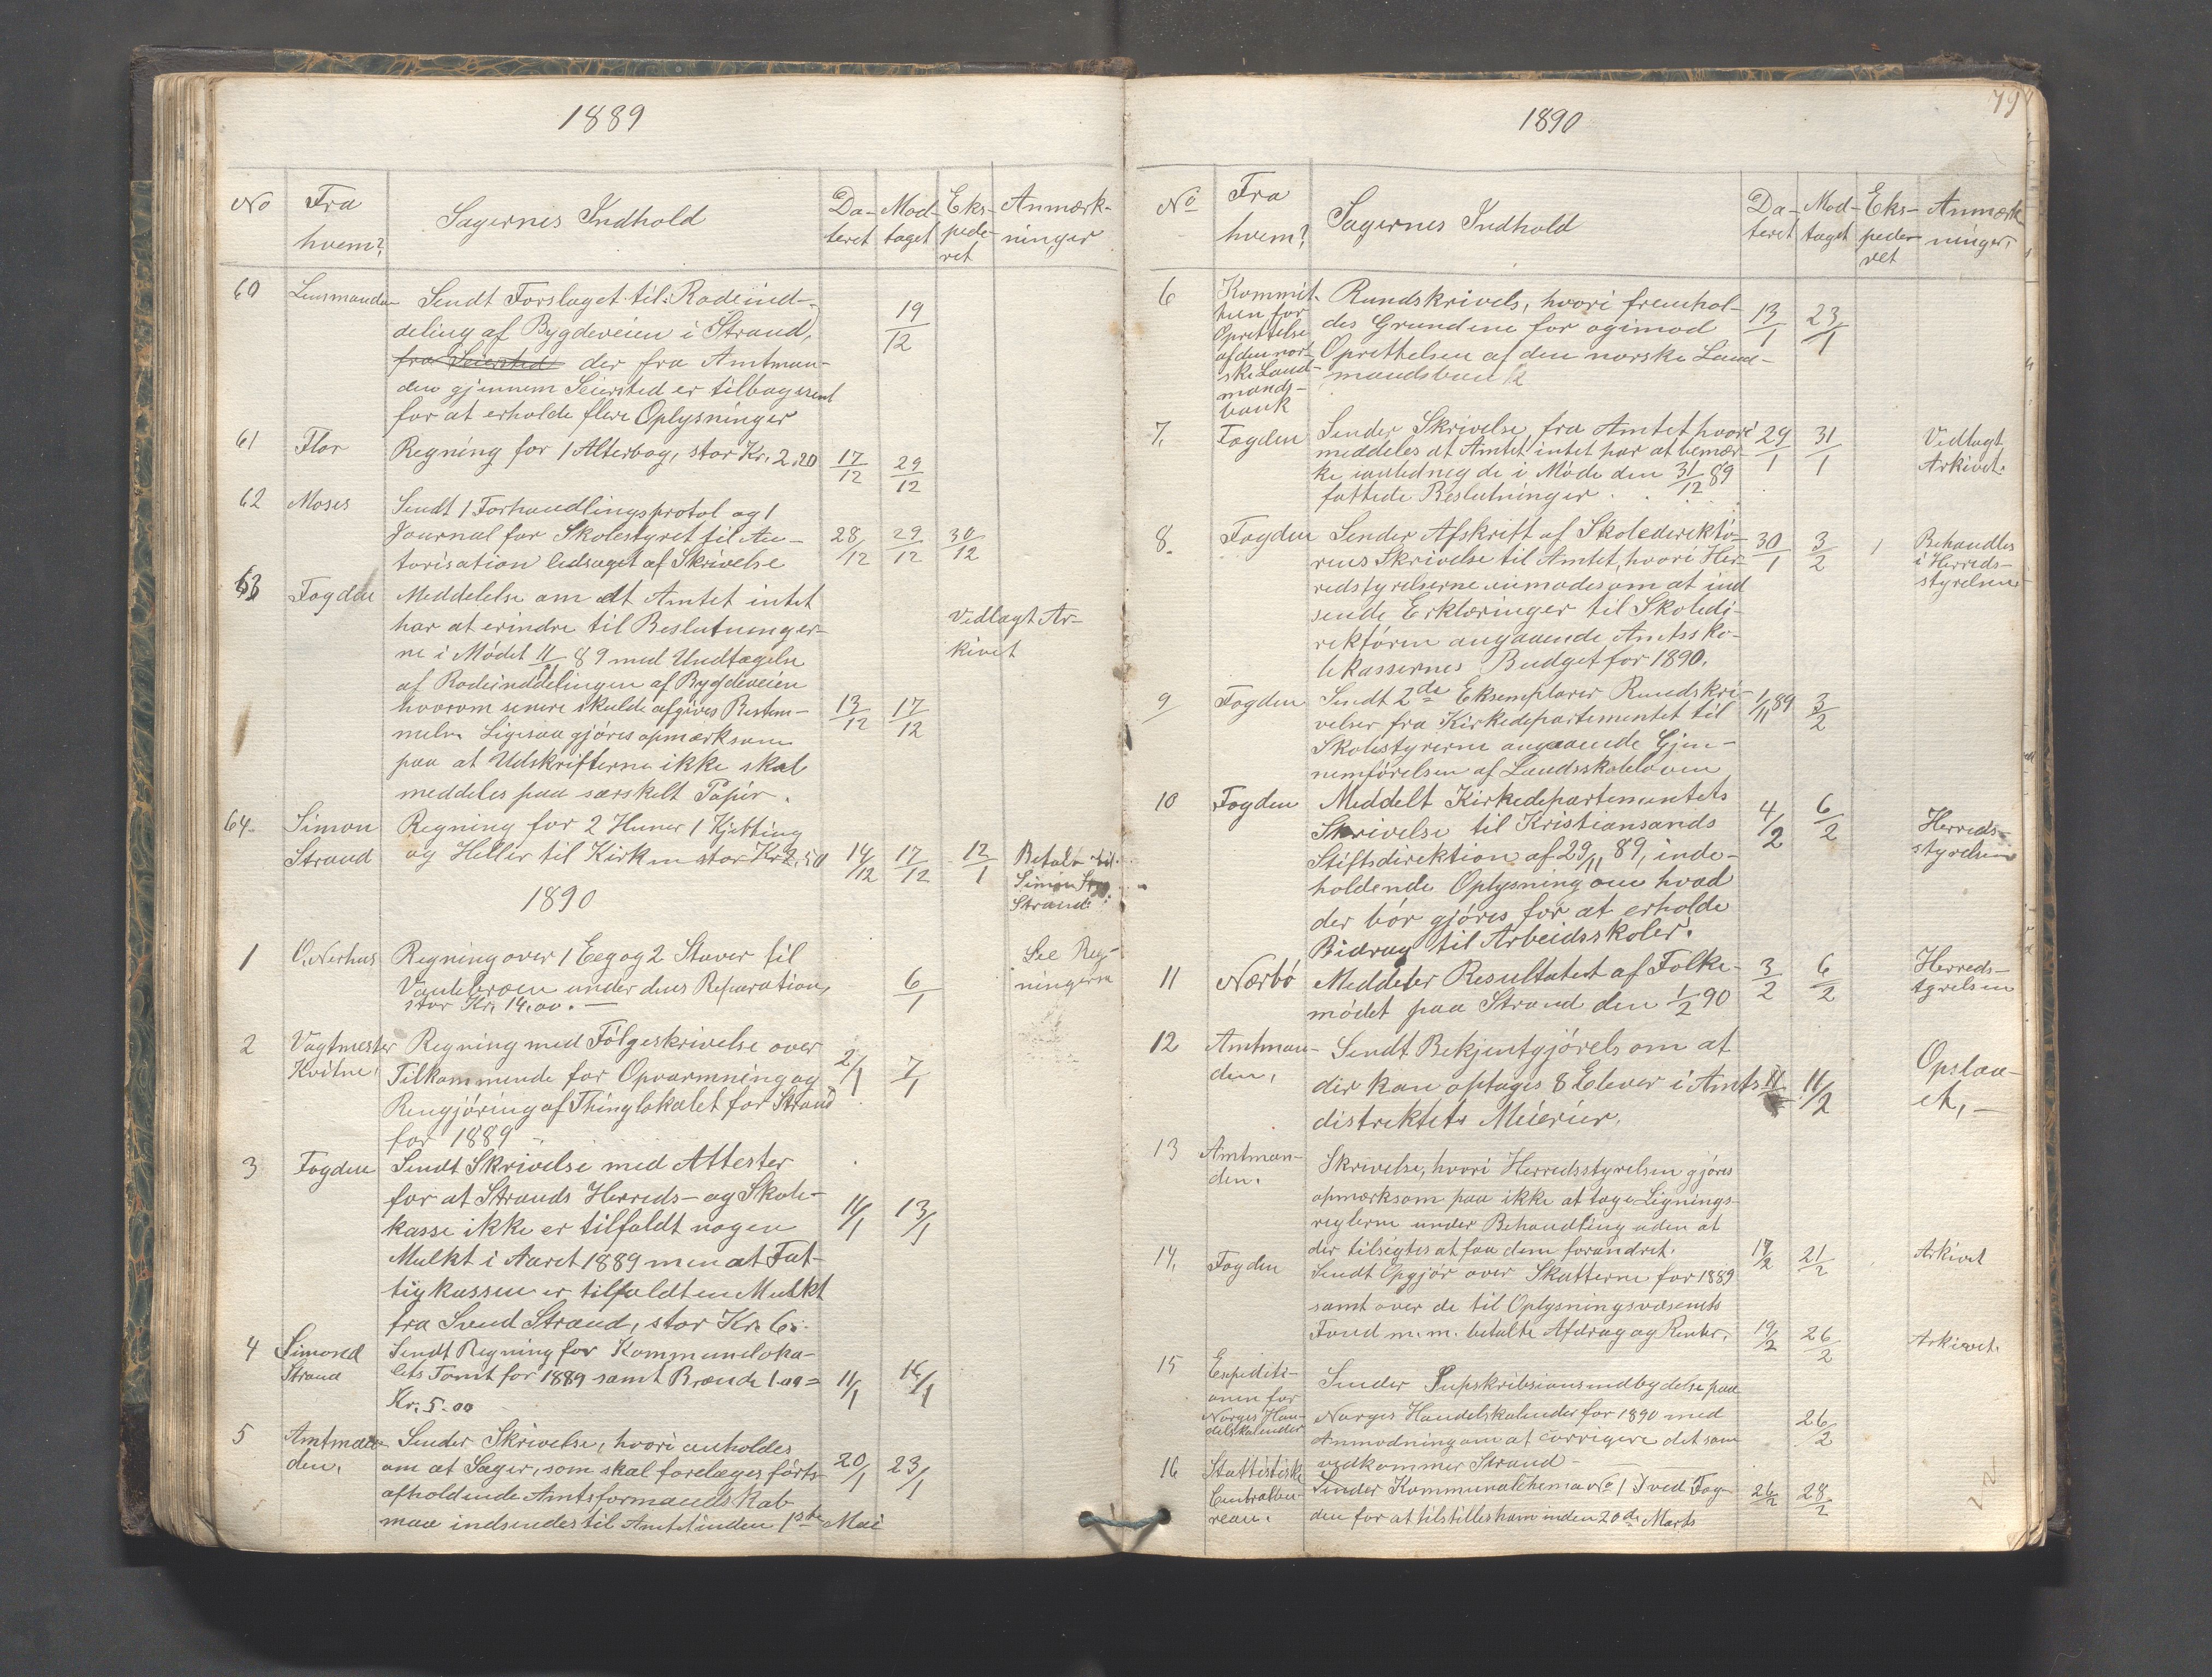 1889
No Fra hvem? Sagernes Indhold Dateret Modtaget Ekspederet Anmærkninger
60 Lensmanden Sendt Forslaget til Rodeind-
deling af Bygdeveien i Strand, 19/12
fra Seiersted der fra Amtman-
den gjennem Seiersted er tilbagesent
for at erholde flere Oplysninger
61 Flor Regning for 1 Alterbog, stor Kr. 2,20 17/12 29/12
62 Moses Sendt 1 Forhandlingsprotol og 1
Journal for Skolestyret til Au- 28/12 29/12 30/12
torisation ledsaget af Skrivelse
63 Fogden Meddelelse om at Amtet intet
har at erindre til Beslutninger- Vedlagt Ar-
ne i Mødet 11/11 89 med Undtagelse kivet
af Rodeinddelingen af Bygdeveien
hvorom senere skulde afgives Bestem- 13/12 17/12
melse Ligesaa gjøres opmærksom
paa at Udskrifterne ikke skal
meddeles paa særskelt Papir.
64. Simon Regning for 2 Huner 1 Kjetting
Strand og Heller til Kirken stor Kr 2,50 14/12 17/12 12/1 Betalt til
Simon
Strand
1890
1 O. Nerhus Regning over 1 Eeg og 2 Staver til See Reg-
under dens Reparation, 6/1 ningerne
stor Kr. 14,00. —
2 Vagtmester Regning med Følgeskrivelse over 2/1 7/1
Kvitne. Tilkommende for Opvarmning og
Rengjøring af Thinglokalet for Strand
for 1889 –
3 Fogden Sendt Skrivelse med Attester
for at Strands Herreds- og Skole- 11/1 13/1
kasse ikke er tilfaldt nogen
Mulkt i Aaret 1889 men at Fat-
tigkassen er tilfaldt en Mulkt
fra Svend Strand, stor Kr. 6.
4 Simon Sendt Regning for Kommuneloka-
Strand lets Tomt for 1889 samt Brænde 1.00 = 11/1 16/1
Kr. 5.00
5 Amtman- Sender Skrivelse, hvori anholdes
den. om at Sager, som skal forelæges først- 20/1 23/1
afholdende Amtsformandskab
maa indsendes til Amtet inden 1ste Mai
79
1890
No Fra hvem? Sagernes Indhold Dateret Modtaget Ekspederet Anmærkninger.
6 Kommit- Rundskrivels, hvori fremhol-
teen for des Grundene for ogimod 13/1 23/1
Oprettelse Oprettelsen af den norske Land-
af den nor- mandsbank
ske Land-
mands-
bank
7, Fogden Sender Skrivelse fra Amtet hvori 29/1 31/1 Vedlagt
meddeles at Amtet intet har at bemær- Arkivet.
ke de i Møde den 31/12 89
fattede Beslutninger.
8. Fogden Sender Afskrift af Skoledirektø- 30/1 3/2 Behandles
rens Skrivelse til Amtet, hvori Her- i Herreds-
redstyrelserne anmodes om at ind styrelsen
sende Erklæringer til Skoledi-
rektøren angaaende Amtssko-
lekassernes Budget for 1890.
9 Fogden Sendt 2de Eksemplarer Rundskri- 1/11 89 3/2
velser fra Kirkedepartementet til
Skolestyrerne angaaende Gjen-
nemførelsen af Landsskoleloven
10 Fogden Meddelt Kirkedepartementets 4/2 6/2
Skrivelse til Kristiansands Herreds-
Stiftsdirektion af 29/11 89, inde- styrelsen
holdende Oplysning om hvad
der bør gjøres for at erholde
Bidrag til Arbeidsskoler.
11 Nærbø Meddeler Resultatet af Folke- 3/2 6/2 Herreds-
mødet paa Strand den 1/2 90 tyrelsen
12 Amtman- Sendt Bekjentgjørels om at Opslaa-
den, der kan optages 8 Elever i Amts 11/2 et, —
distriktets Meierier.
13 Amtman- Skrivelse, hvori Herredsstyrelsen gjøres
den. opmærksom paa ikke at tage Lignings-
reglerne under Behandling uden at
der tilsigtes at faa dem forandret. 17/2 21/2 Arkivet
14, Fogden Sendt Opgjør over Skatterne for 1889
samt over de til Oplysningsvæsenets
Fond m. m. betalte Afdrag og Renter. 19/2 26/2 Arkivet.
15 Expediti- Sender Supskribsionsindbydelse paa
onen for Norges Handelskalender for 1890 med 26/2
Norges Han- Anmodning om at corrigere det som
delskalender vedkommer Strand –
16 Stattistiske Sender Kommunalchema No 1 I ved Fog- 26/2 28/2
Centralbu- den for at tilstilles ham inden 20de Marts
reau.